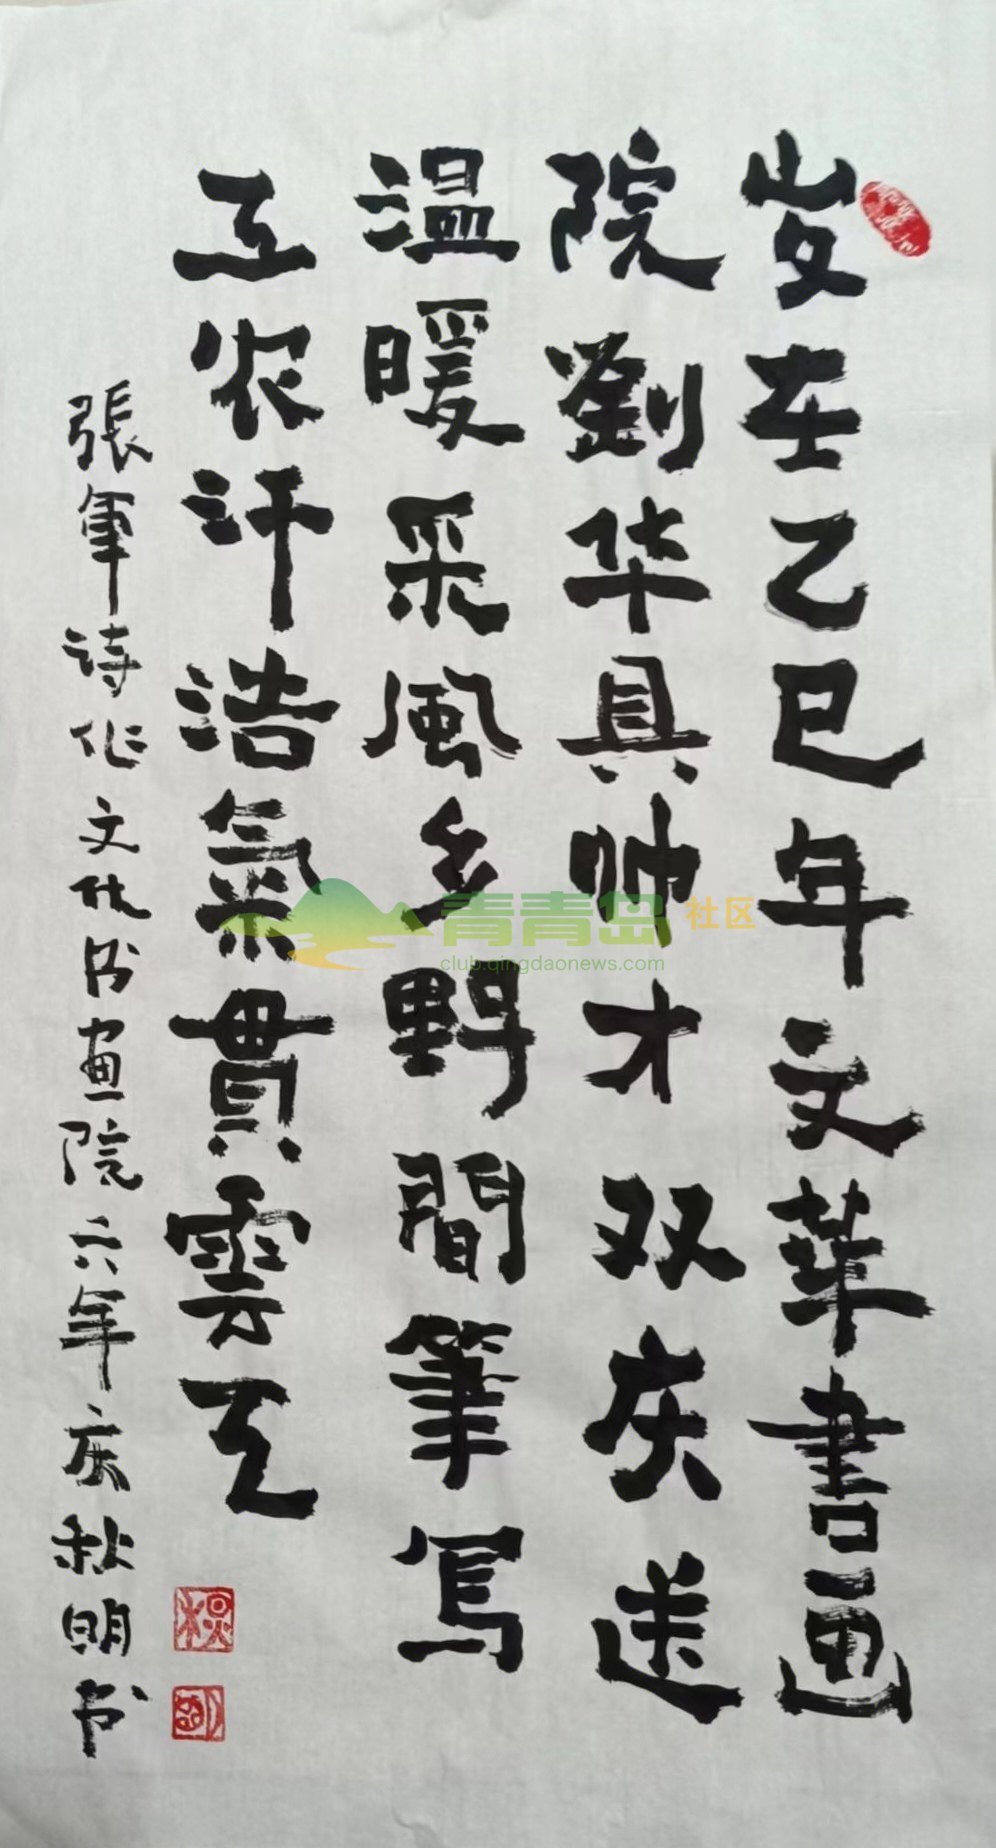 岁在乙巳年文華書画
院劉华具帅才双庆送
温暖采風乡野間筆写
工农汗浩氣貫雲天
張軍诗作文化书画院六年庆秋明书
青青岛社区
club.qingdaonews.com